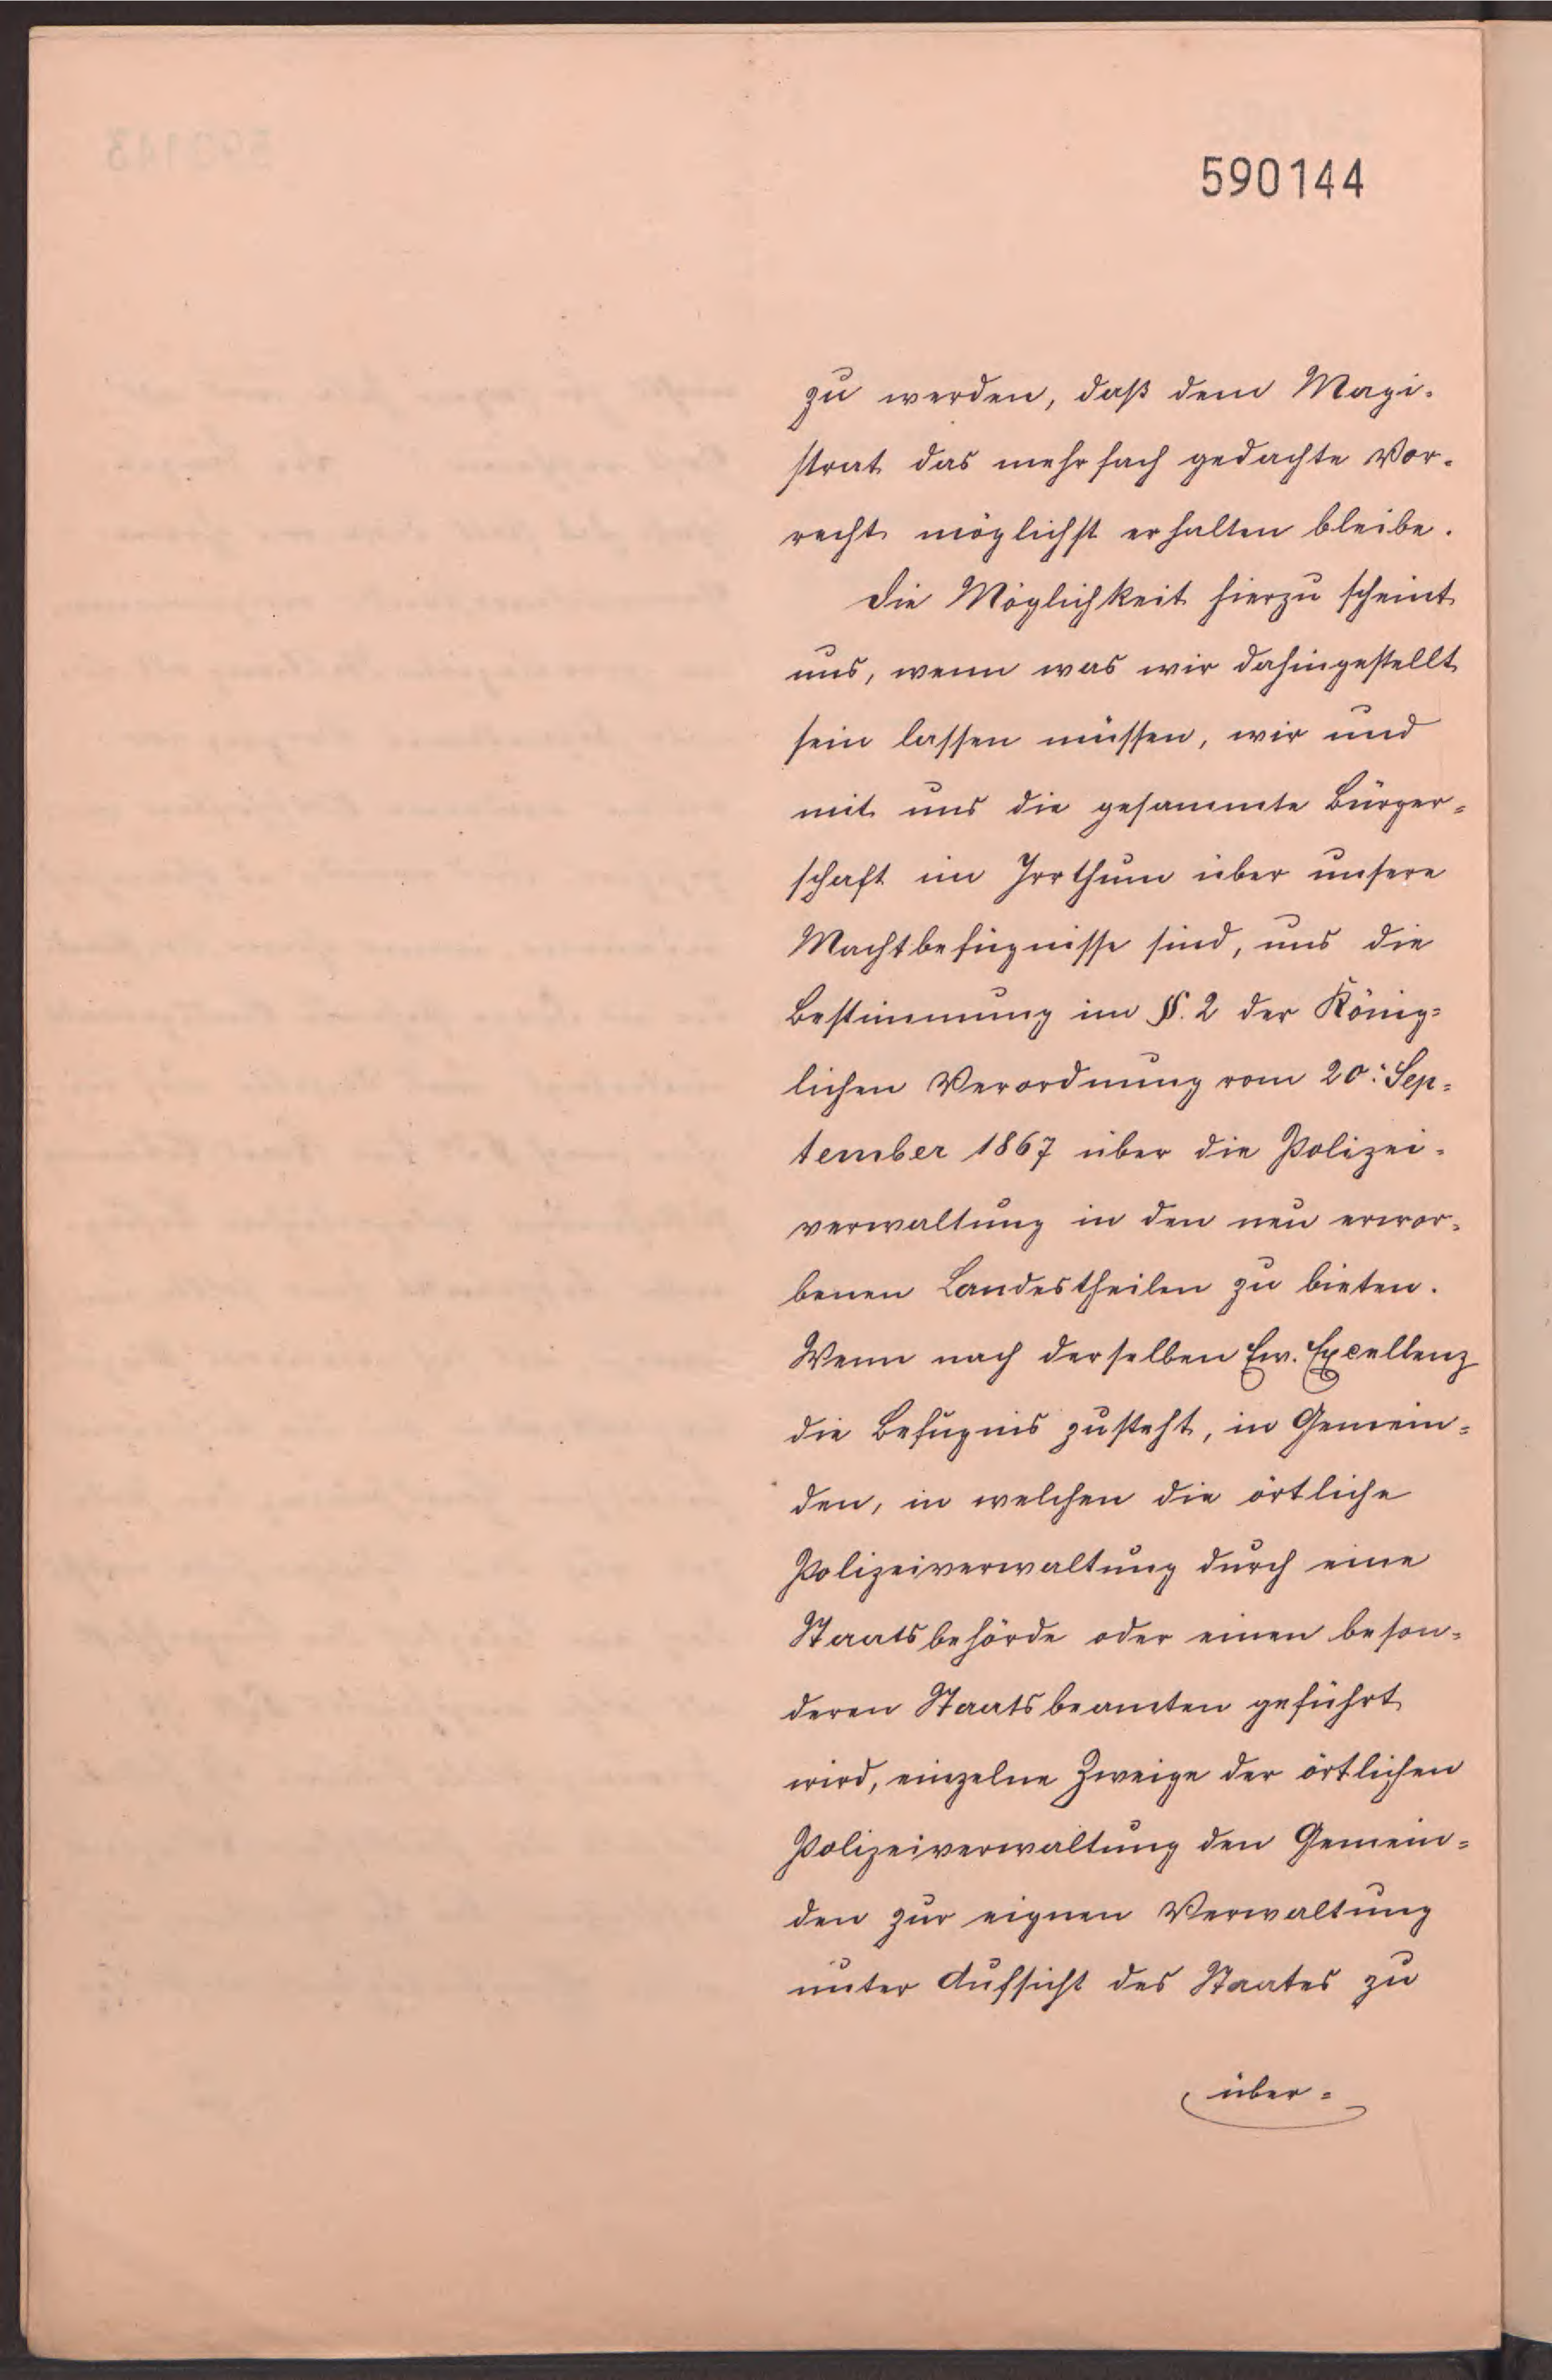 590144
zu werden, daß dem Magi-
strat das mehrfach gedachte Vor-
recht möglichst erhalten bleibe.
Die Möglichkeit hierzu scheint
uns, wenn was wir dahingestellt
sein lassen müssen, wir und
mit uns die gesammte Bürger-
schaft im Irrthum über unsere
Machtbefugnisse sind, uns die
Bestimmung im §. 2 der König-
lichen Verordnung vom 20. Sep-
tember 1867 über die Polizei-
verwaltung in den neu erwor-
benen Landestheilen zu bieten.
Wenn nach derselben Ew. Excellenz
die Befugnis zusteht, in Gemein-
den, in welchen die örtliche
Polizeiverwaltung durch eine
Staatsbehörde oder einen beson-
deren Staatsbeamten geführt
wird, einzelne Zweige der örtlichen
Polizeiverwaltung den Gemein-
den zur eignen Verwaltung
unter Aufsicht des Staates zu
über-